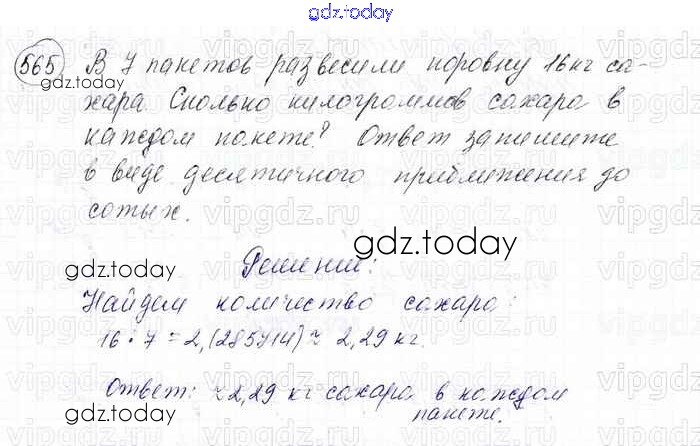 gdz.today
565 В 7 пакетов развесили поровну 16 кг са-
gdz.today
хара. Сколько килограммов сахара в
каждом пакете? Ответ запишите
в виде десятичного приближения до
сотых.
gdz.today
Решение:
gdz.today
Найдем количество сахара:
16 : 7 = 2,(285714) ≈ 2,29 кг.
Ответ: ≈ 2,29 кг сахара в каждом
пакете.
gdz.today
gdz.today